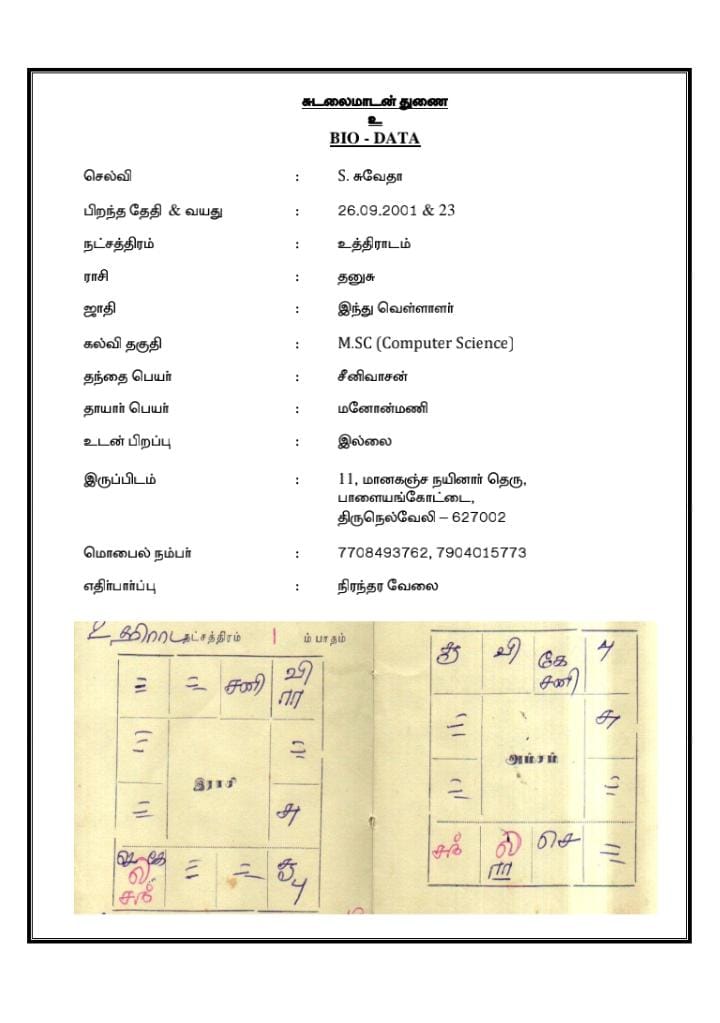 சுடலைமாடன் துணை
உ
BIO - DATA
செல்வி : S. சுவேதா
பிறந்த தேதி & வயது : 26.09.2001 & 23
நட்சத்திரம் : உத்திராடம்
ராசி : தனுசு
ஜாதி : இந்து வெள்ளாளர்
கல்வி தகுதி : M.SC (Computer Science)
தந்தை பெயர் : சீனிவாசன்
தாயார் பெயர் : மனோன்மணி
உடன் பிறப்பு : இல்லை
இருப்பிடம் : 11, மானகஞ்ச நயினார் தெரு,
பாளையங்கோட்டை,
திருநெல்வேலி – 627002
மொபைல் நம்பர் : 7708493762, 7904015773
எதிர்பார்ப்பு : நிரந்தர வேலை
உத்திராட நட்சத்திரம் 1 ம் பாதம்
சனி வி
ரா
இராசி
கே
ல
சந்
வி கே
சனி
அம்சம்
சந் ல செ
ரா